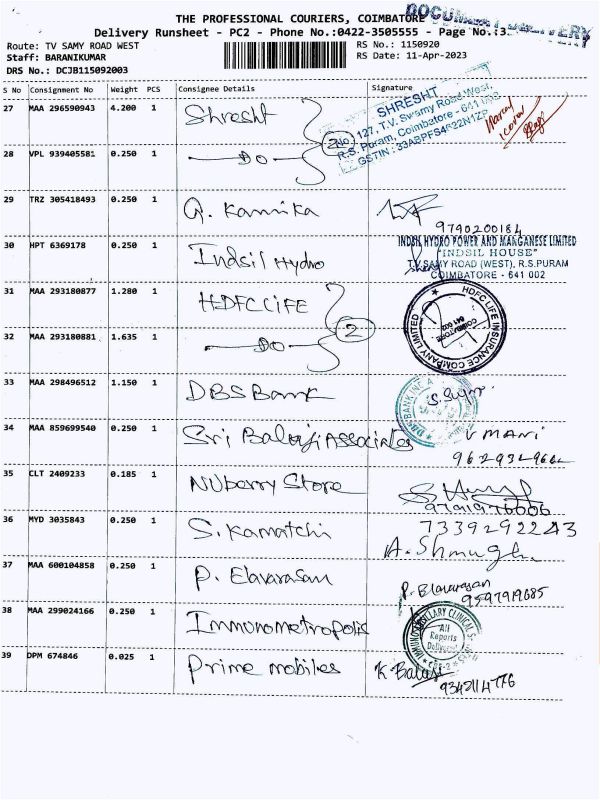 THE PROFESSIONAL COURIERS, COIMBATORE
DOCUMENT DELIVERY
Delivery Runsheet - PC2 - Phone No.:0422-3505555 - Page No.:3
Route: TV SAMY ROAD WEST
RS No.: 1150920
Staff: BARANIKUMAR
RS Date: 11-Apr-2023
DRS No.: DCJB115092003
S No Consignment No Weight PCS Consignee Details Signature
27 MAA 296590943 4.200 1 Shresht
SHRESHT
No. 127, T.V. Swamy Road West,
R.S. Puram, Coimbatore - 641 002
GSTIN : 33ABPFS4522N1ZP
2
28 VPL 939405581 0.250 1 DO
29 TRZ 305418493 0.250 1 G. Kannika
9790200184
30 HPT 6369178 0.250 1 Indsil Hydro
INDSIL HYDRO POWER AND MANGANESE LIMITED
"INDSIL HOUSE"
T.V.SAMY ROAD (WEST), R.S.PURAM
COIMBATORE - 641 002
31 MAA 293180877 1.280 1 HDFC LIFE
2
HDFC LIFE INSURANCE COMPANY LIMITED
COIMBATORE
641 002
32 MAA 293180881 1.635 1 DO
33 MAA 298496512 1.150 1 DBS Bank
34 MAA 859699540 0.250 1 Sri Balaji Associates V MANI
35 CLT 2409233 0.185 1 NUberry Store
36 MYD 3035843 0.250 1 S. Kamatchi
37 MAA 600104858 0.250 1 P. Elavarasan P. Elavarasan
9597919685
38 MAA 299024166 0.250 1 Immunometropolis
All
Reports
Delivered
39 DPM 674846 0.025 1 Prime mobiles K. Balaji